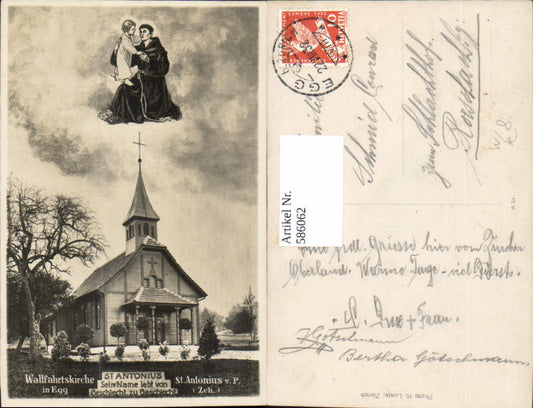 Wallfahrtskirche
in Egg
ST ANTONIUS
Sein Name lebt von
Geschlecht zu Geschlecht
St. Antonius v. P.
(Zch.)
10
HELVETIA
EGG
Artikel Nr.
586062
Schmid Conrad
zum Schlachthof
Rorschach
W 8
W.M
Grüsse hier vom Zürcher
Oberland. Warme Tage - viel Durst.
+ Frau.
Götschmann
Bertha Götschmann.
Photo H. Zürich